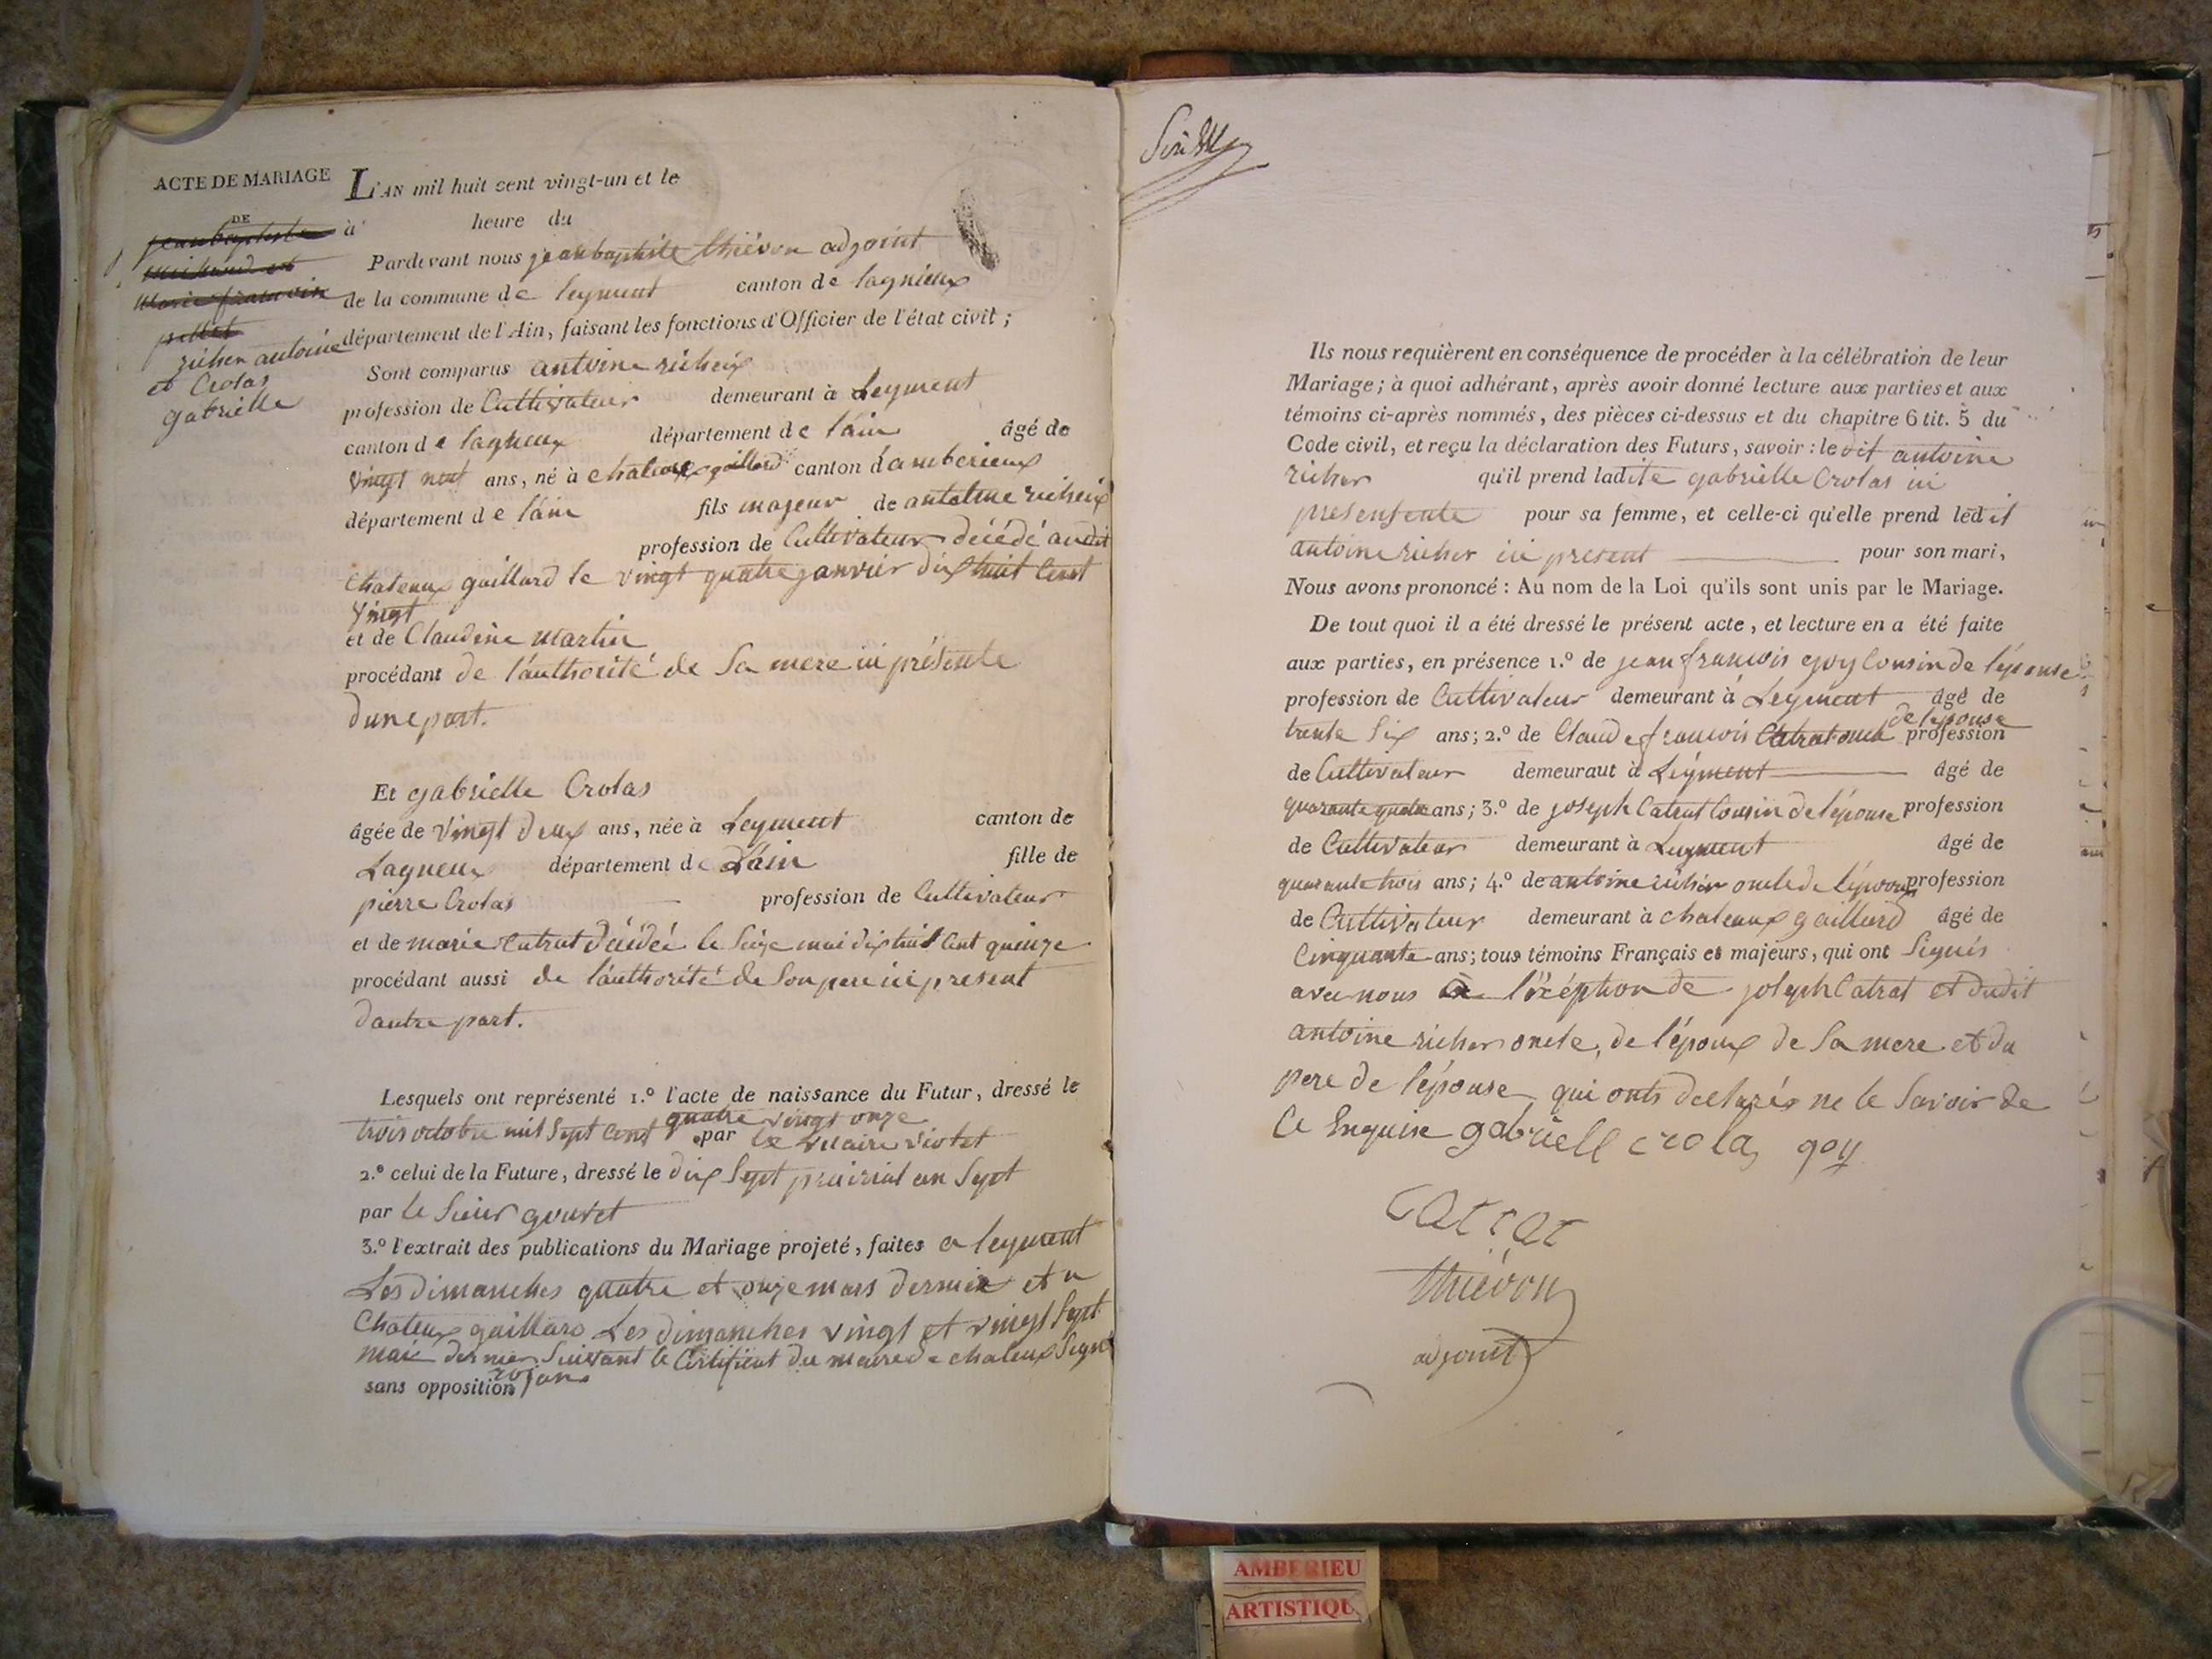 ACTE DE MARIAGE
DE
richer antoine
et Crolas
gabrielle
L'AN mil huit cent vingt-un et le
à heure du
Pardevant nous jean baptiste thiévon adjoint
de la commune de leyment canton de lagnieux
département de l'Ain, faisant les fonctions d'Officier de l'état civil;
Sont comparus antoine richeix
profession de Cultivateur demeurant à Leyment
canton de lagneux département de l'ain âgé de
vingt neuf ans, né à chateaux gaillard canton d'amberieux
département de l'ain fils majeur de antoine richeix
profession de Cultivateur décédé audit
chateaux gaillard le vingt quatre janvier dix huit cent
vingt
et de Claudine martin
procédant de l'authorité de Sa mere ici présente
dune part.
Et gabrielle Crolas
âgée de vingt deux ans, née à Leyment canton de
Lagneux département de L'ain fille de
pierre Crolas profession de Cultivateur
et de marie Catrat décédée le Seize mai dix huit cent quinze
procédant aussi de l'authorité de Son pere ici present
dautre part.
Lesquels ont représenté 1.º l'acte de naissance du Futur, dressé le
trois octobre mil Sept cent quatre vingt onze
par le vicaire viotet
2.º celui de la Future, dressé le dix Sept prairial an Sept
par le Sieur goutet
3.º l'extrait des publications du Mariage projeté, faites a leyment
Les dimanches quatre et onze mars dernier et a
Chateux gaillard Les dimanches vingt et vingt Sept
mai dernier Suivant le Certificat du maire de chateux Signé
sans opposition
Ils nous requièrent en conséquence de procéder à la célébration de leur
Mariage; à quoi adhérant, après avoir donné lecture aux parties et aux
témoins ci-après nommés, des pièces ci-dessus et du chapitre 6 tit. 5 du
Code civil, et reçu la déclaration des Futurs, savoir: le dit antoine
richer qu'il prend ladite gabrielle Crolas ici
presente pour sa femme, et celle-ci qu'elle prend ledit
antoine richer ici present pour son mari,
Nous avons prononcé: Au nom de la Loi qu'ils sont unis par le Mariage.
De tout quoi il a été dressé le présent acte, et lecture en a été faite
aux parties, en présence 1.º de jean francois goy Cousin de l'épouse
profession de Cultivateur demeurant à Leyment âgé de
de lepouse
trente Six ans; 2.º de Claude francois Catrat oncle profession
de Cultivateur demeuraut à Leyment âgé de
quarante quatre ans; 3.º de joseph Catrat Cousin de l'épouse profession
de Cultivateur demeurant à Leyment âgé de
quarante trois ans; 4.º de antoine richer oncle de l'époux profession
de Cultivateur demeurant à chateaux gaillard âgé de
Cinquante ans; tous témoins Français et majeurs, qui ont Signés
avec nous à l'éxéption de joseph Catrat et dudit
antoine richer oncle, de l'époux de Sa mere et du
pere de l'épouse qui onts declarés ne le Savoir de
Ce Enquise gabriell crola goy
catrat
thiévon
adjoint
AMBERIEU
ARTISTIQU